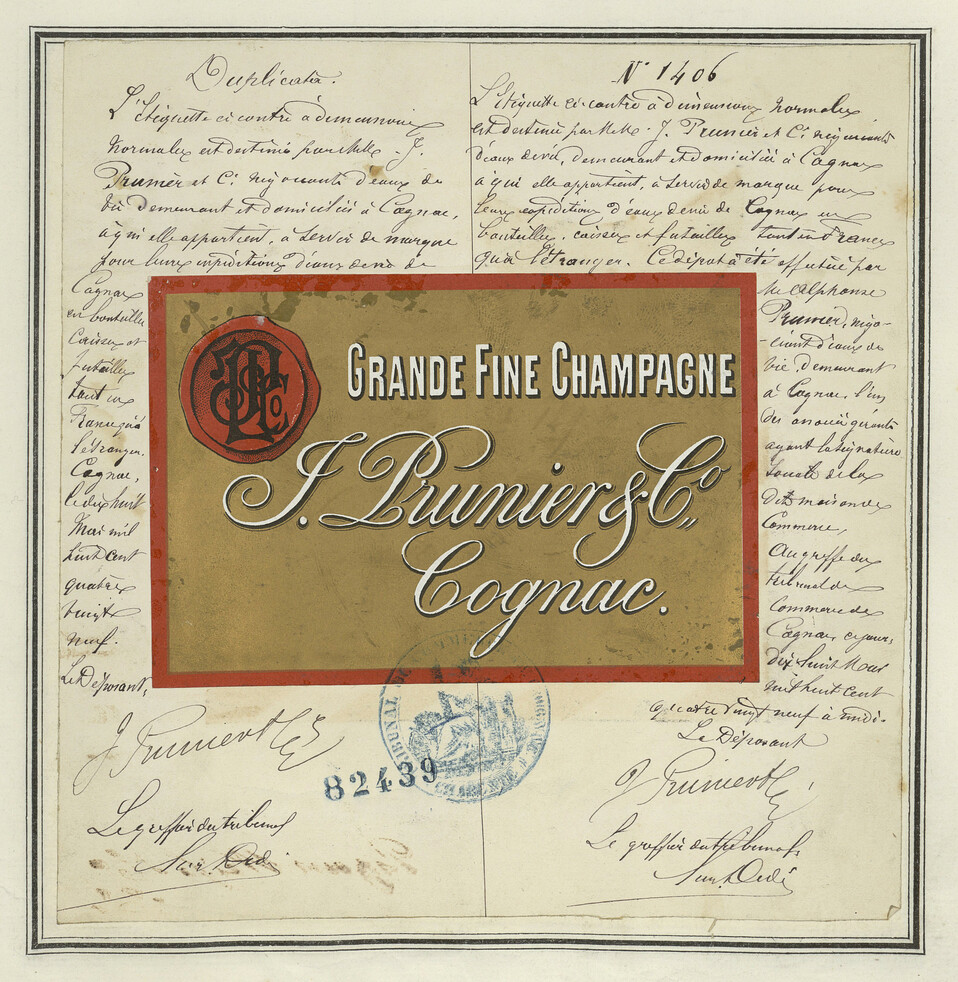 Duplicata.
L'étiquette ci contre à dimensions
normales est destinée par MM. J.
Prunier et Cie négociants d'eaux de
vie demeurant et domiciliés à Cognac,
à qui elle appartient, à servir de marque
pour leurs expéditions d'eaux de vie de
Cognac
en bouteilles
Caisses et
futailles
tant en
France qu'à
l'étranger.
Cognac,
le dix huit
Mai mil
huit cent
quatre
vingt
neuf.
Le Déposant,
J Prunier & Cie
Le greffier du tribunal
N° 1406
L'étiquette ci contre à dimensions normales
est destinée par MM. J. Prunier et Cie négociants
d'eaux de vie, demeurant et domiciliés à Cognac
à qui elle appartient, à servir de marque pour
leurs expéditions d'eaux de vie de Cognac en
bouteilles, caisses et futailles tant en France
qu'à l'étranger. Ce dépôt a été effectué par
M. Alphonse
Prunier, négo-
-ciant d'eaux de
vie, demeurant
à Cognac, l'un
des associés gérants
ayant la signature
sociale de la
dite maison de
Commerce,
Au greffe du
tribunal de
Commerce de
Cognac ce jour,
dix huit Mai
mil huit cent
quatre vingt neuf à midi.
Le Déposant
J Prunier & Cie
Le greffier du tribunal
GRANDE FINE CHAMPAGNE
J. Prunier & Co.,
Cognac.
JP & Co
82439